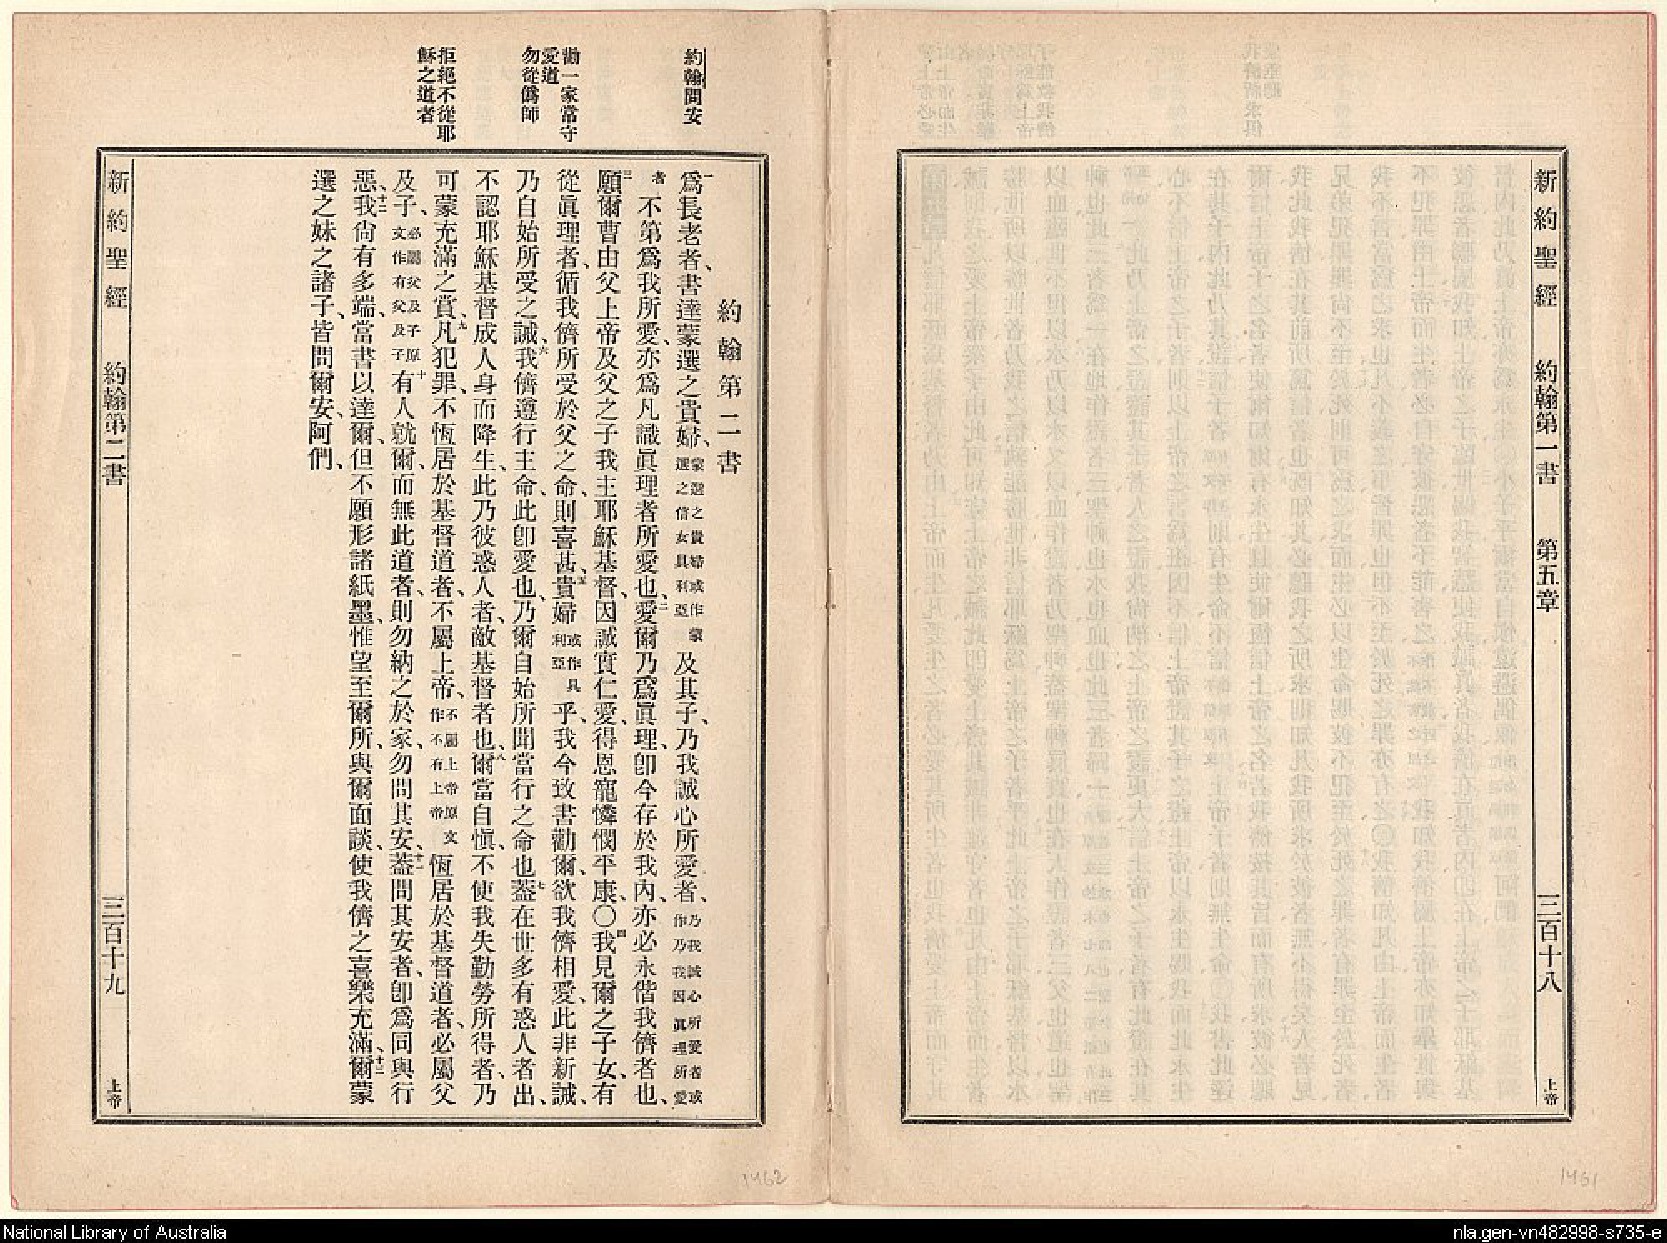 新約聖經 約翰第一書 第五章 三百十八 上帝
約翰問安
勸一家常守
愛道
勿從僞師
拒絕不從耶
穌之道者
約翰第二書
一爲長老者、書達蒙選之貴婦、蒙選之貴婦或作蒙選之信女具利亞及其子、乃我誠心所愛者、乃我誠心所愛者或作乃我因眞理所愛
者不第爲我所愛、亦爲凡識眞理者所愛也、二愛爾乃爲眞理、卽今存於我內、亦必永偕我儕者也、
三願爾曹由父上帝、及父之子我主耶穌基督、因誠實仁愛、得恩寵憐憫平康、〇四我見爾之子女、有
從眞理者、循我儕所受於父之命、則喜甚、五貴婦或作具利亞乎、我今致書勸爾、欲我儕相愛、此非新誡、
乃自始所受之誡、六我儕遵行主命、此卽愛也、乃爾自始所聞當行之命也、七蓋在世多有惑人者出、
不認耶穌基督成人身而降生、此乃彼惑人者、敵基督者也、八爾當自愼、不使我失勤勞所得者、乃
可蒙充滿之賞、九凡犯罪、不恆居於基督道者、不屬上帝、不屬上帝原文作不有上帝恆居於基督道者、必屬父
及子、必屬父及子原文作有父及子十有人就爾而無此道者、則勿納之於家、勿問其安、十一蓋問其安者、卽爲同與行
惡、十二我尙有多端、當書以達爾、但不願形諸紙墨、惟望至爾所、與爾面談、使我儕之喜樂充滿、十三爾蒙
選之妹之諸子、皆問爾安、阿們、
新約聖經 約翰第二書 三百十九 上帝
1462
1461
National Library of Australia
nla.gen-vn482998-s735-e